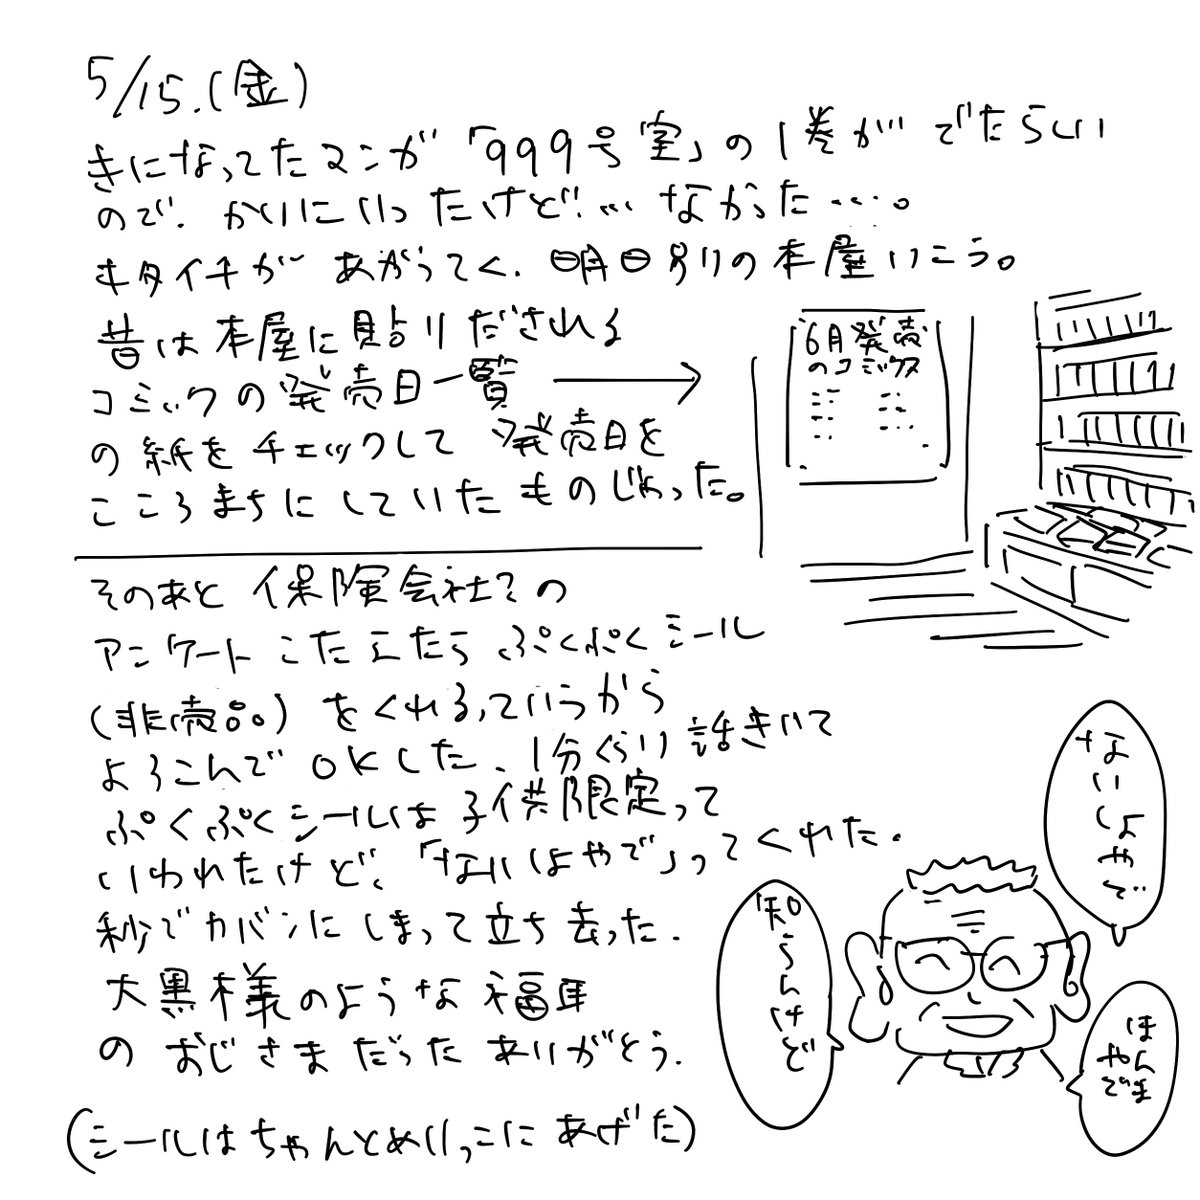 5/15.(金)
きになってたマンガ「999号室」の1巻がでたらしい
ので、かいにいったけど…なかった…。
キタイチがあがってく、明日別の本屋いこう。
昔は本屋に貼りだされる
コミックの発売日一覧
の紙をチェックして発売日を
こころまちにしていたものじゃった。
6月発売
のコミックス
そのあと保険会社?の
アンケートこたえたらぷくぷくシール
(非売品)をくれるっていうから
よろこんでOKした、1分ぐらい話きいて
ぷくぷくシールは子供限定って
いわれたけど、「ないしょやで」ってくれた.
秒でカバンにしまって立ち去った.
大黒様のような福耳
のおじさまだった ありがとう.
(シールはちゃんとめいっこにあげた)
ないしょやで
知らんけど
ほんまやで